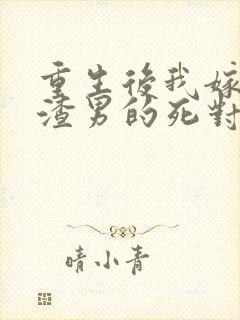 重生後我嫁
渣男的死對
晴小青